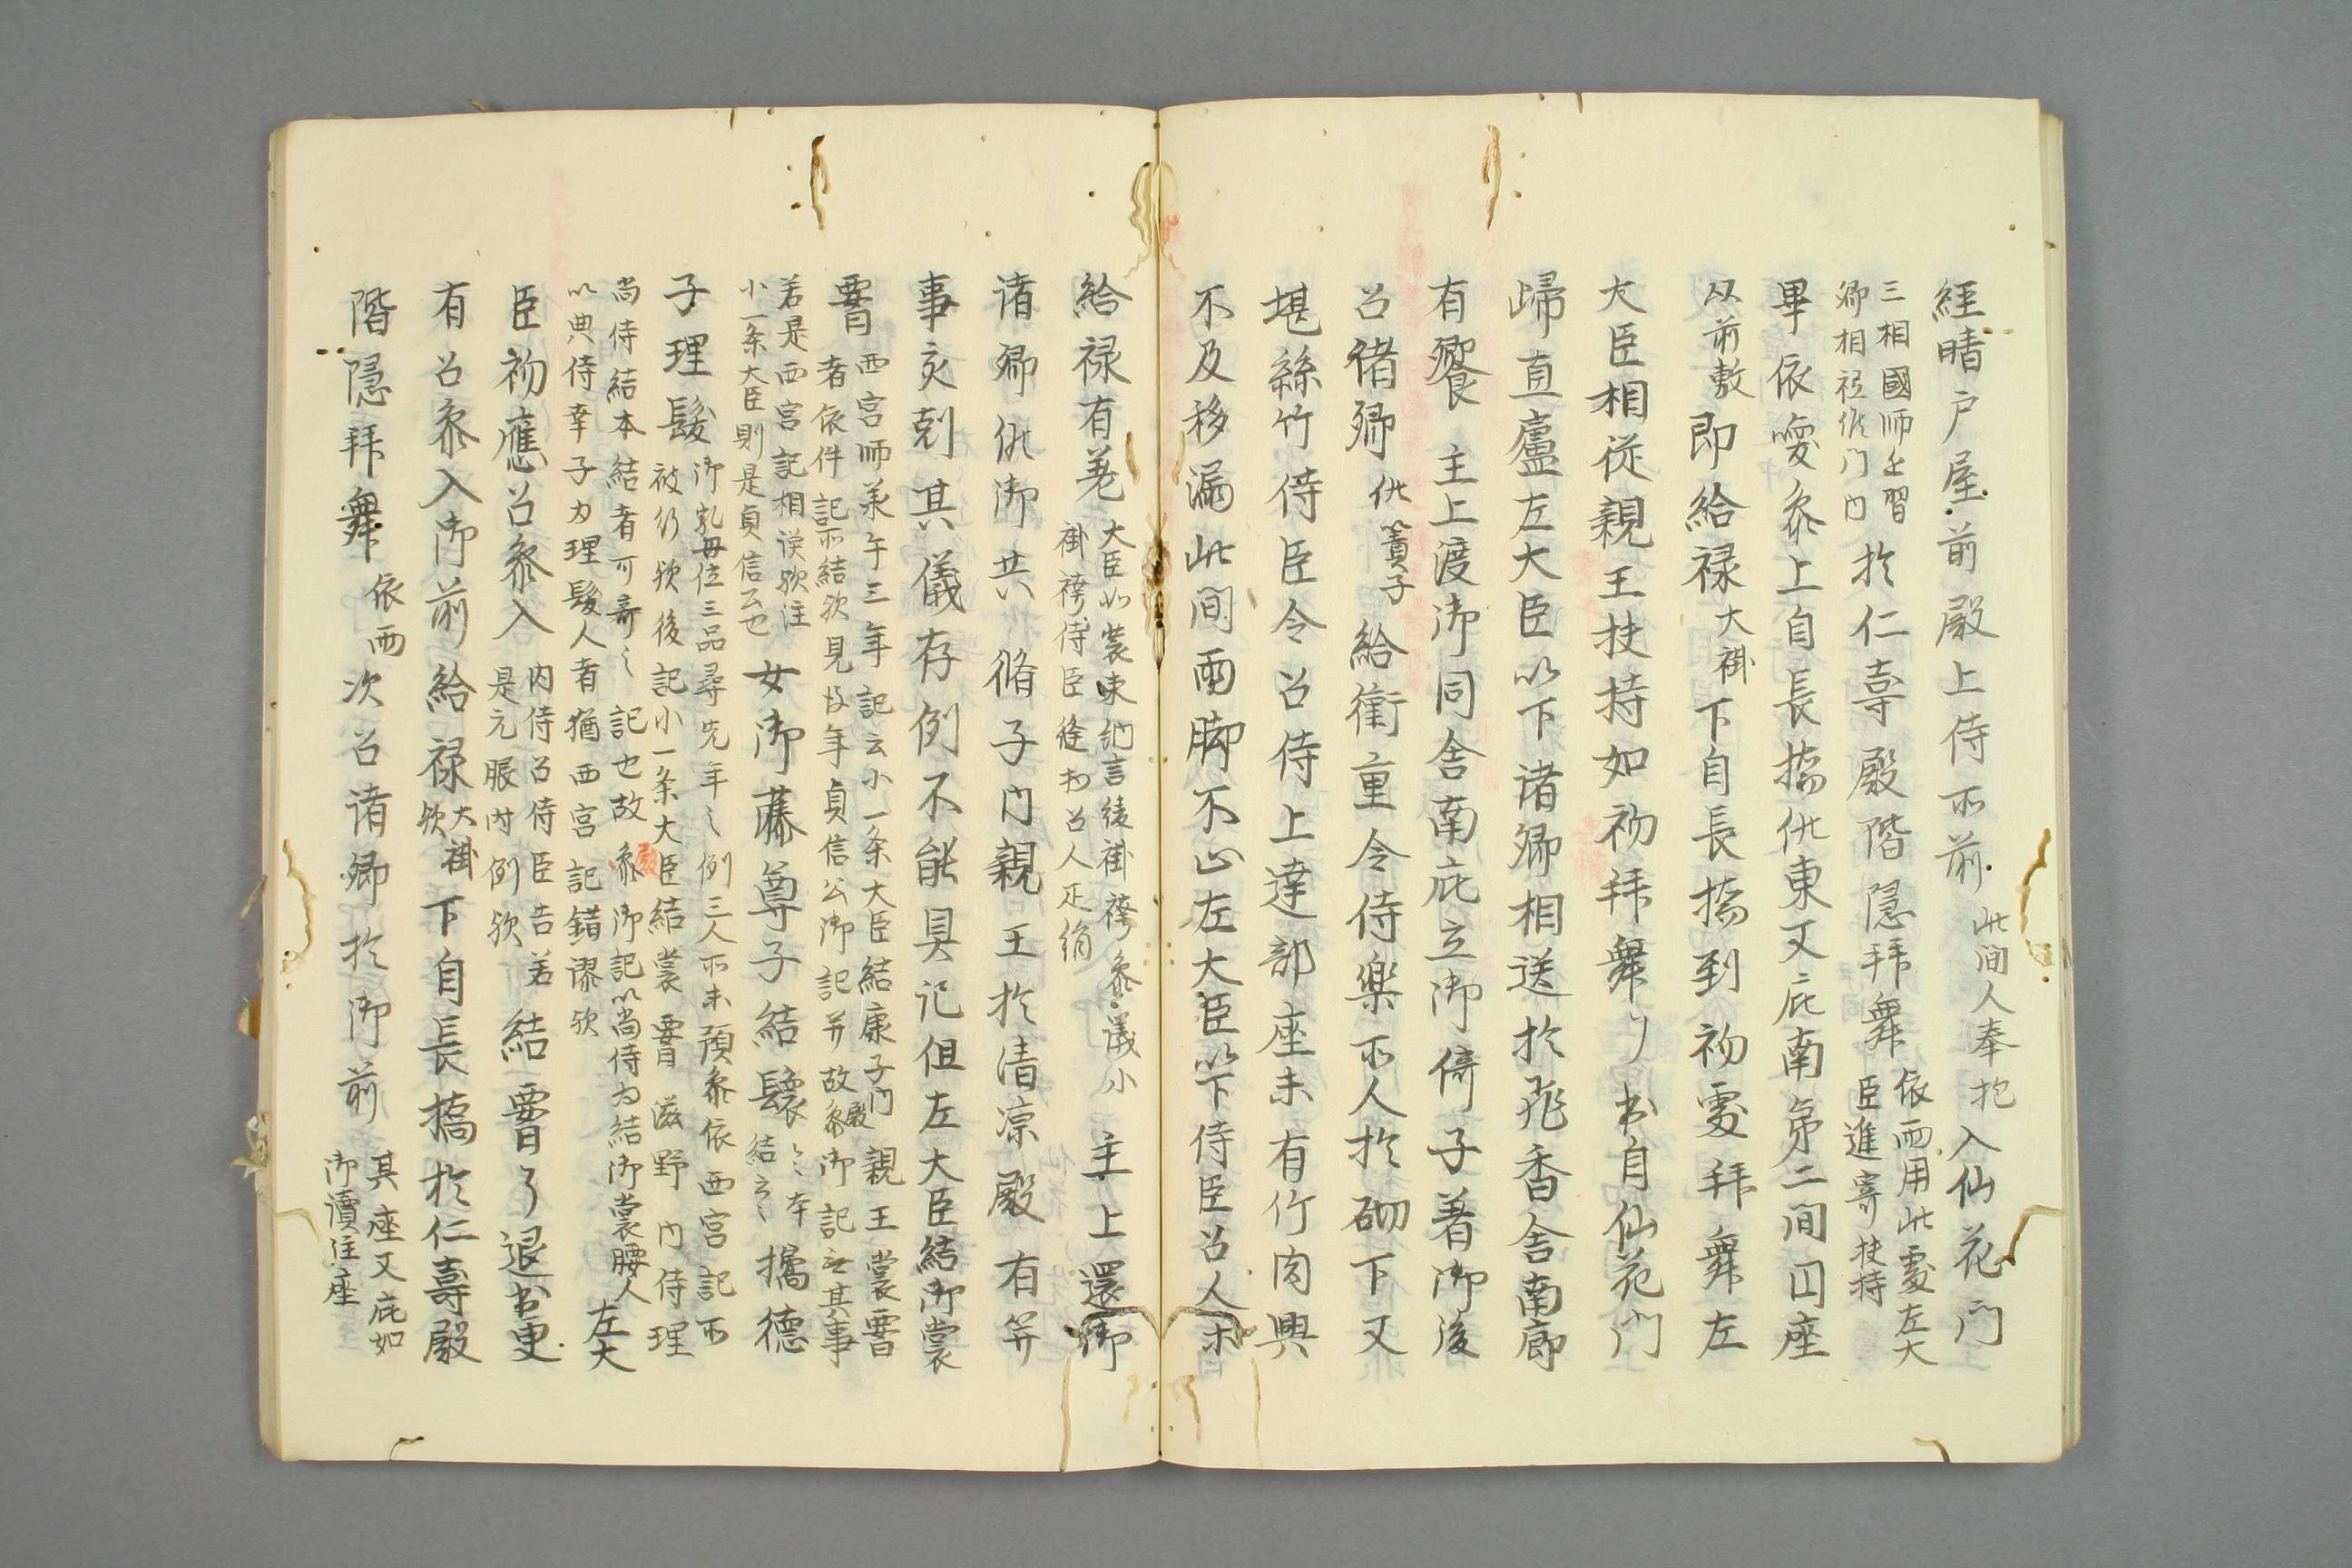 経晴戸屋前殿上侍所前此間人奉抱入仙花門
三相國師之習
卿相祗候門内
於仁寿殿階隠拝舞
依雨用此處左大
臣進寄扶持
畢依喚参上自長橋供東又庇南第二間円座
以前敷即給禄大褂下自長橋到初處拝舞左
大臣相従親王扶持如初拝舞了出自仙花門
帰直廬左大臣以下諸卿相送於飛香舎南廊
有饗 主上渡御同舎南庇立御倚子着御後
召諸卿供簀子給衝重令侍楽所人於砌下又
堪絲竹侍臣令召侍上達部座末有竹肉興
不及移漏此間雨脚不止左大臣以下侍臣召人未
給禄有差
大臣如装束納言綾褂袴参議小
褂袴侍臣絁おの召人疋絹
主上還御
諸卿供御共 脩子内親王於清涼殿有笄
事亥剋其儀存例不能具記但左大臣結御裳
署
西宮師承午三年記云小一条大臣結康子内親王裳署
者依件記所結欤見彼年貞信公御記并故殿御記無其事
若是西宮記相誤欤注
小一条大臣則是貞信公也
女御藤尊子結鬟々本
結云々
攜德
子理髪
御乳母位三品尋先年之例三人所未預参依西宮記所
被行欤後記小一条大臣結裳署滋野内侍理
尚侍結本結者可奇之 記也故殿御記以尚侍為結御裳腰人
以典侍幸子為理髪人者猶西宮記錯謬欤
左大
臣初應召参入
内侍召侍臣告若
是元服時例欤
結署了退出更
有召参入御前給禄大褂欤下自長橋於仁寿殿
階隠拝舞依雨次召諸卿於御前
其座又庇如
御読経座